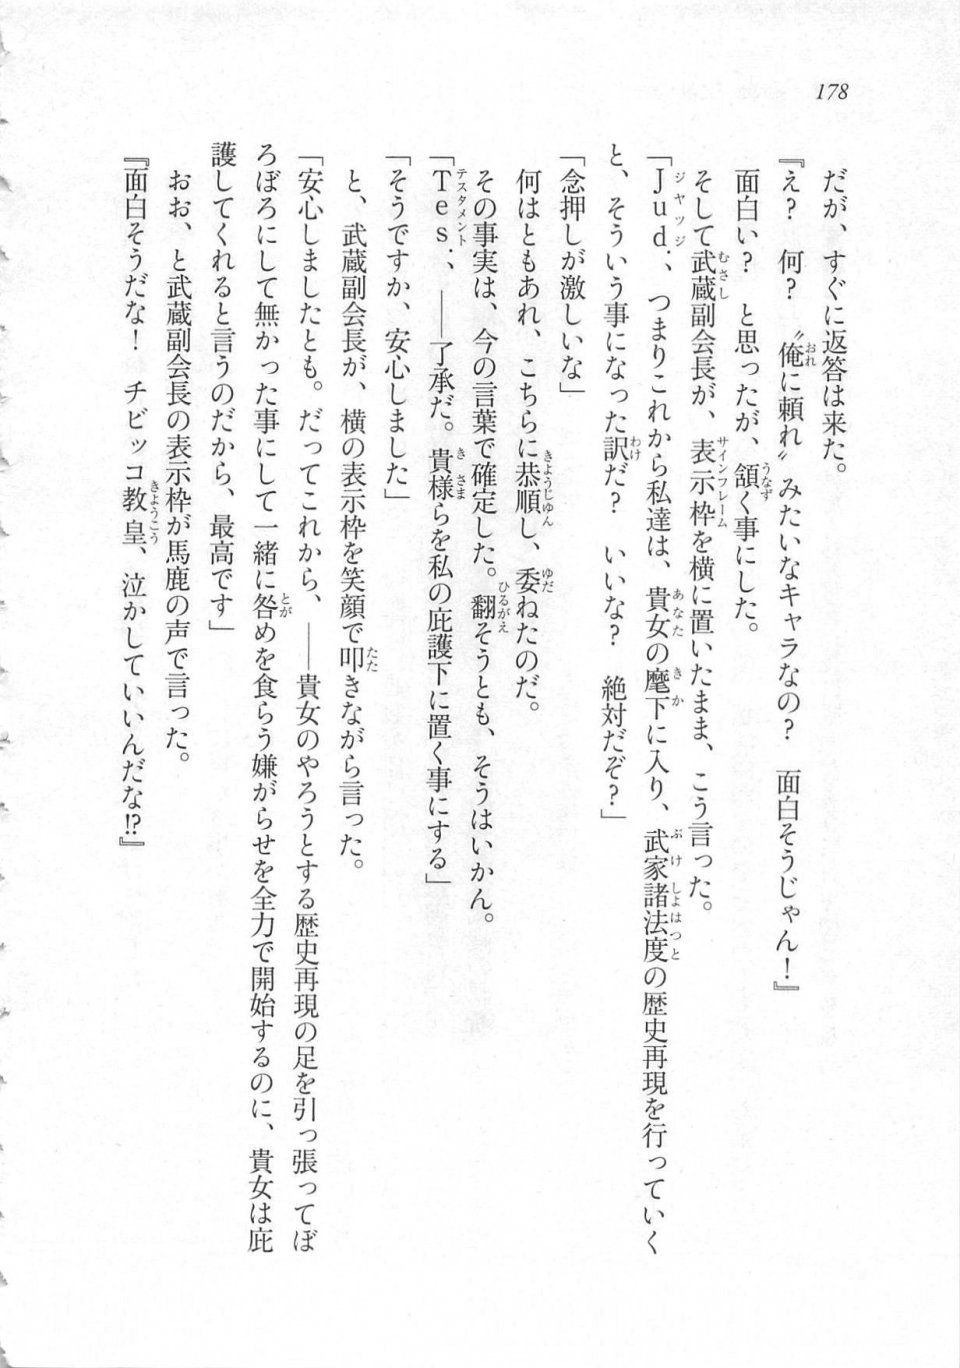 178
だが、すぐに返答は来た。
『え？　何？　〝俺に頼れ〟みたいなキャラなの？　面白そうじゃん！』
面白い？　と思ったが、頷く事にした。
そして武蔵副会長が、表示枠を横に置いたまま、こう言った。
「Ｊｕｄ．、つまりこれから私達は、貴女の麾下に入り、武家諸法度の歴史再現を行っていく
と、そういう事になった訳だ？　いいな？　絶対だぞ？」
「念押しが激しいな」
何はともあれ、こちらに恭順し、委ねたのだ。
その事実は、今の言葉で確定した。翻そうとも、そうはいかん。
「Ｔｅｓ．、――了承だ。貴様らを私の庇護下に置く事にする」
「そうですか、安心しました」
と、武蔵副会長が、横の表示枠を笑顔で叩きながら言った。
「安心しましたとも。だってこれから、――貴女のやろうとする歴史再現の足を引っ張ってぼ
ろぼろにして無かった事にして一緒に咎めを食らう嫌がらせを全力で開始するのに、貴女は庇
護してくれると言うのだから、最高です」
おお、と武蔵副会長の表示枠が馬鹿の声で言った。
『面白そうだな！　チビッコ教皇、泣かしていいんだな!?』